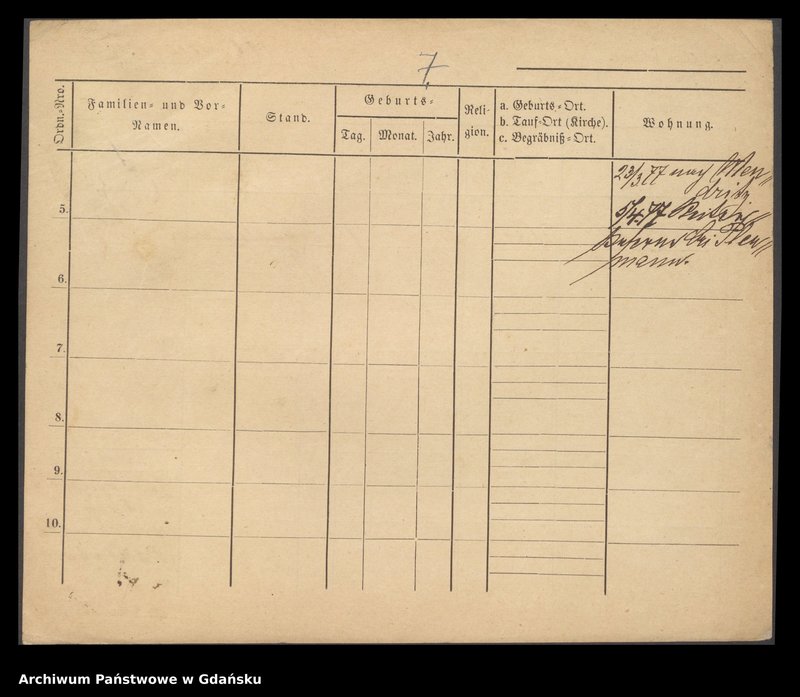 7.
Ordn.-Nro.
Familien- und Vor-
Namen.
Stand.
Geburts-
Tag.
Monat.
Jahr.
Reli-
gion.
a. Geburts-Ort.
b. Tauf-Ort (Kirche).
c. Begräbniß-Ort.
Wohnung.
23/3 77 nach
5/4 77
bei
mann.
5.
6.
7.
8.
9.
10.
Archiwum Państwowe w Gdańsku